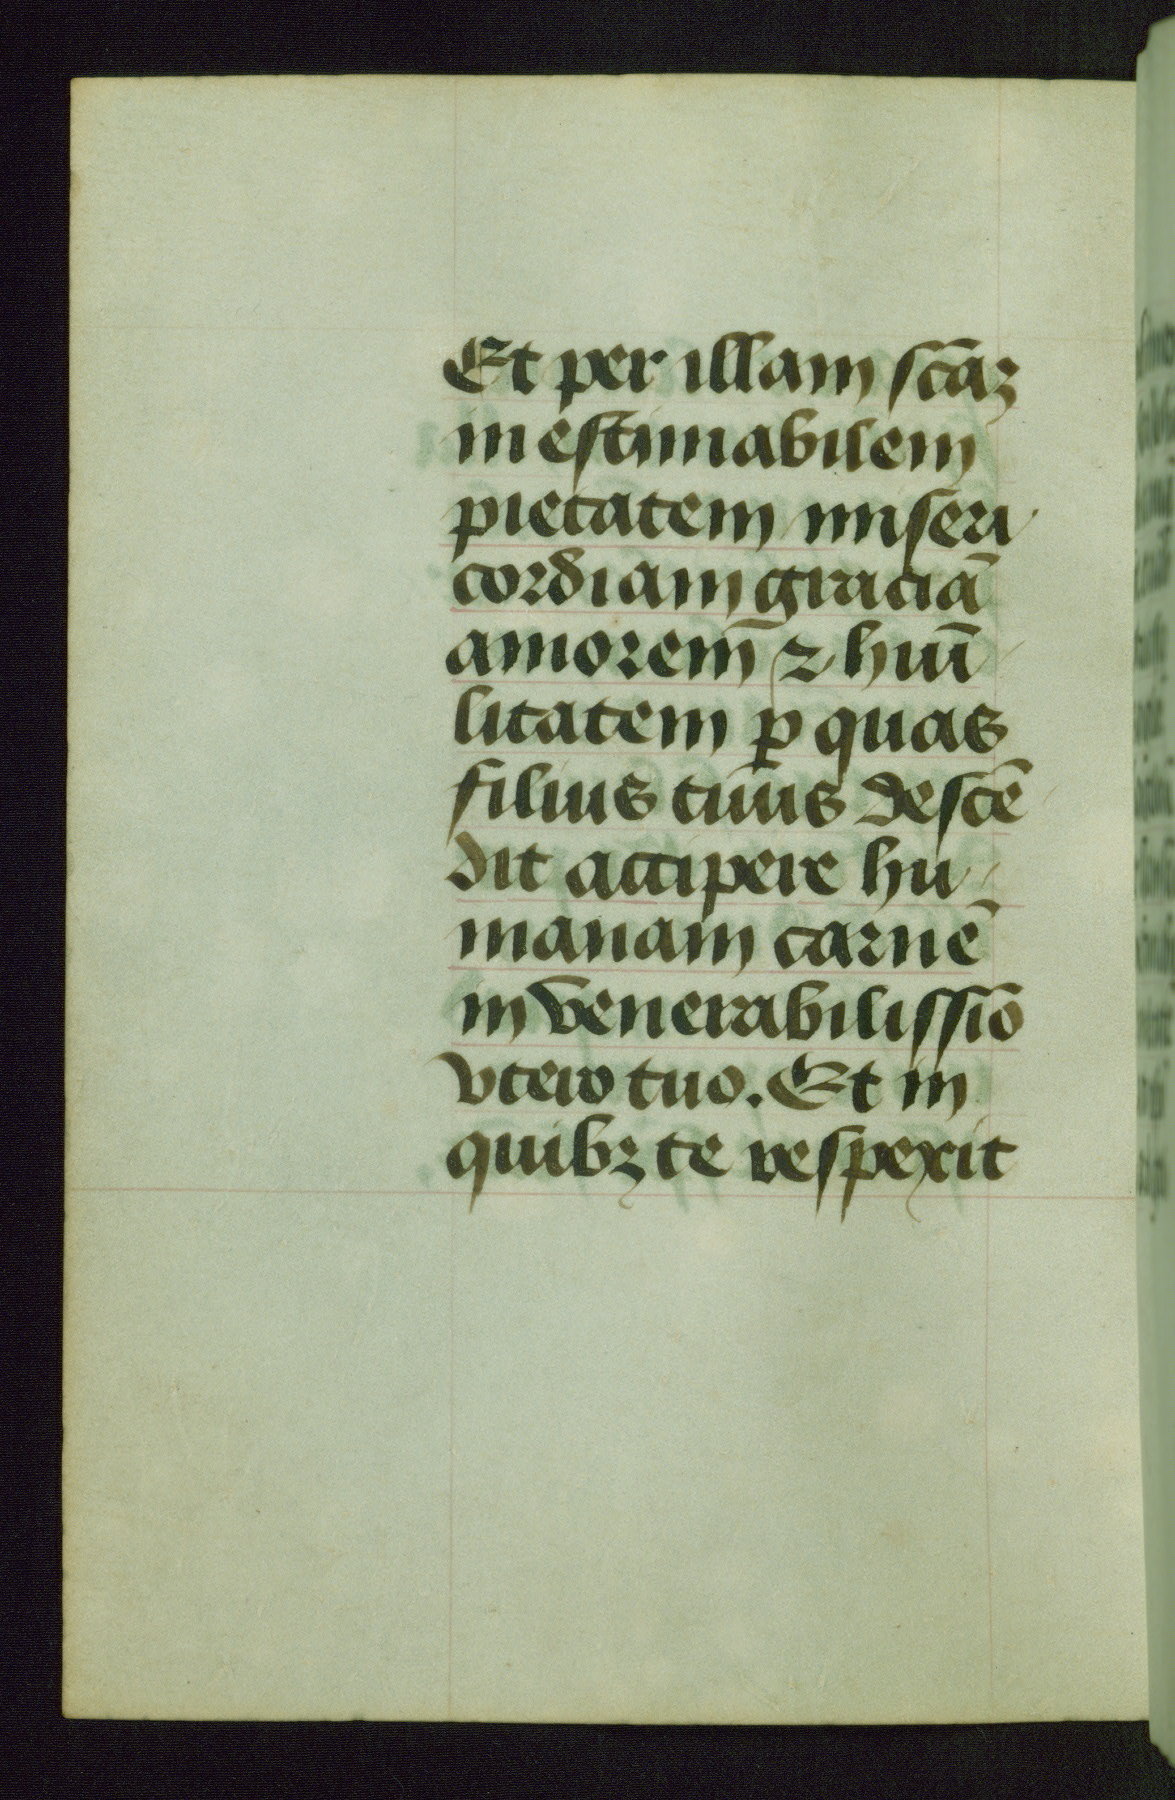 Et per illam scāꝫ
inestimabilem
pietatem miseri
cordiam graciā
amorem̄ ⁊ humī
litatem ꝑ quas
filius tuus descē
dit accipere hu
manam carnē
in venerabilissīo
vtero tuo. Et in
quibꝫ te respexit